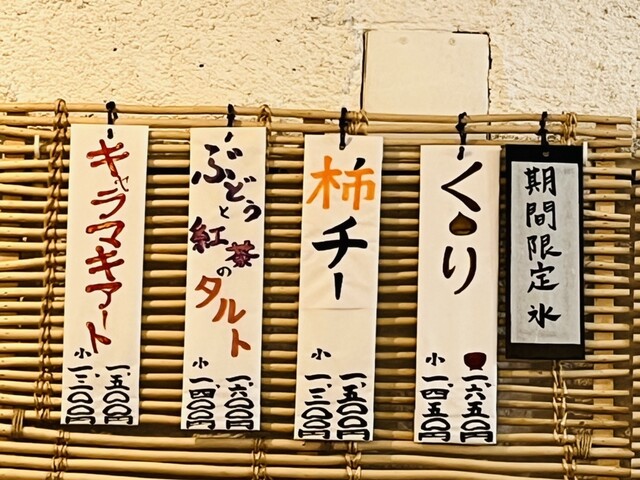 期間限定氷
くり
一、六五〇円
小 一、四五〇円
柿チー
一、五〇〇円
小 一、三〇〇円
ぶどうと
紅茶の
タルト
一、六〇〇円
小 一、四〇〇円
キャラマキアート
一、五〇〇円
小 一、三〇〇円